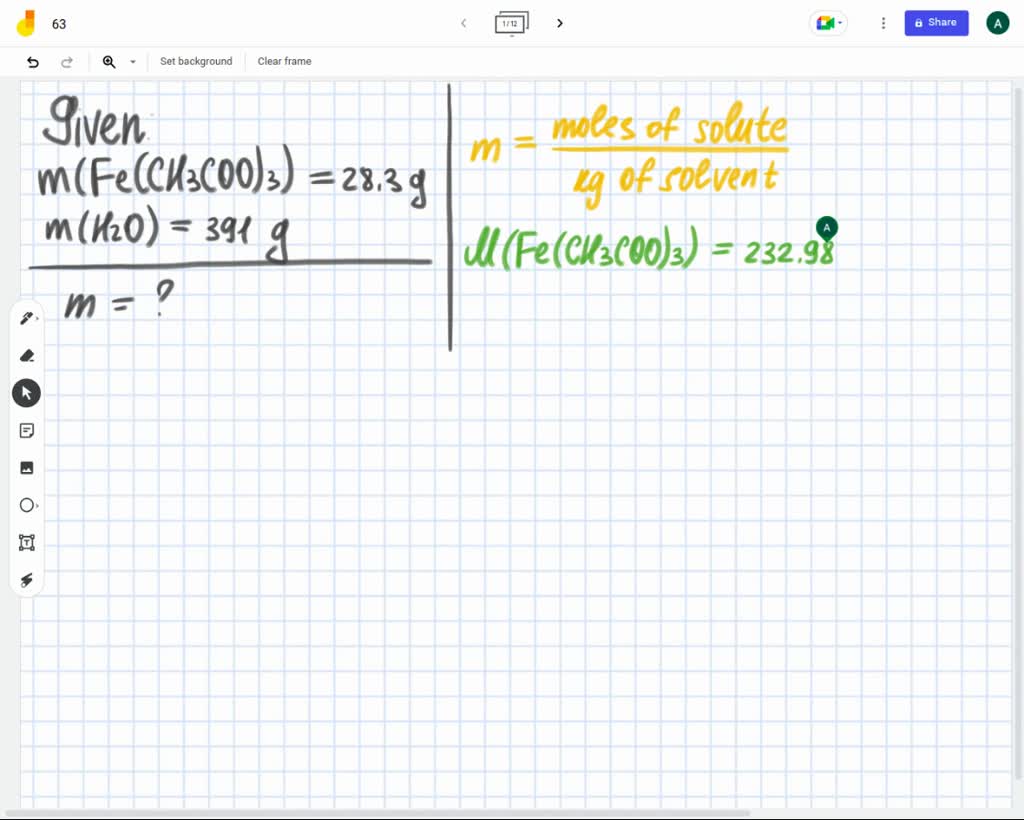 63
1 / 12
Share
A
Set background
Clear frame
Given
m(Fe(CH3COO)3) = 28.3 g
m(H2O) = 391 g
m = ?
m = moles of solute
kg of solvent
A
M(Fe(CH3COO)3) = 232.98
T